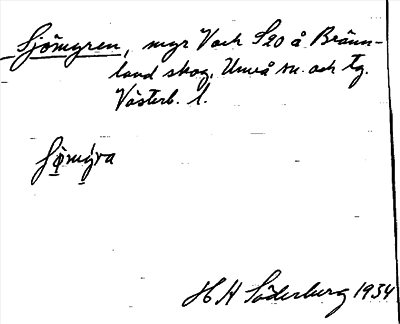 Sjömyren, myr V och S 20 å Bränn-
land skog, Umeå sn. och tg.
Västerb. l.
H H Söderberg 1934